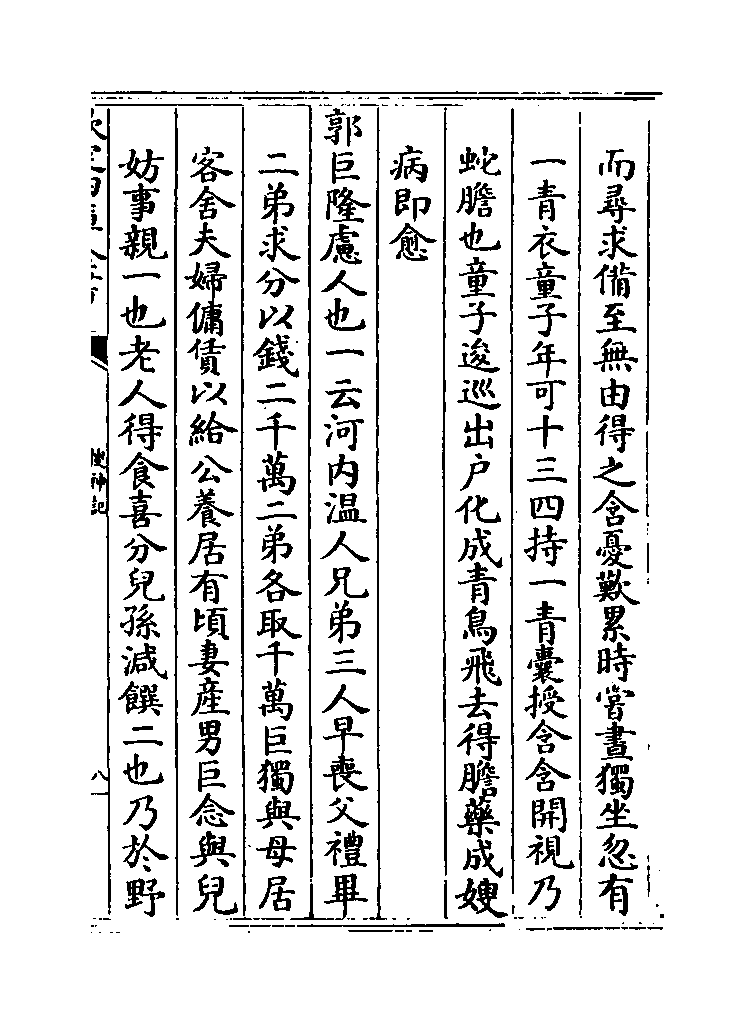 而尋求備至無由得之含憂歎累時嘗晝獨坐忽有
一青衣童子年可十三四持一青囊授含含開視乃
蛇膽也童子逡巡出户化成青鳥飛去得膽藥成嫂
病即愈
郭巨隆慮人也一云河内温人兄弟三人早喪父禮畢
二弟求分以錢二千萬二弟各取千萬巨獨與母居
客舍夫婦傭賃以給公養居有頃妻産男巨念與兒
妨事親一也老人得食喜分兒孫減饌二也乃於野
搜神記
八